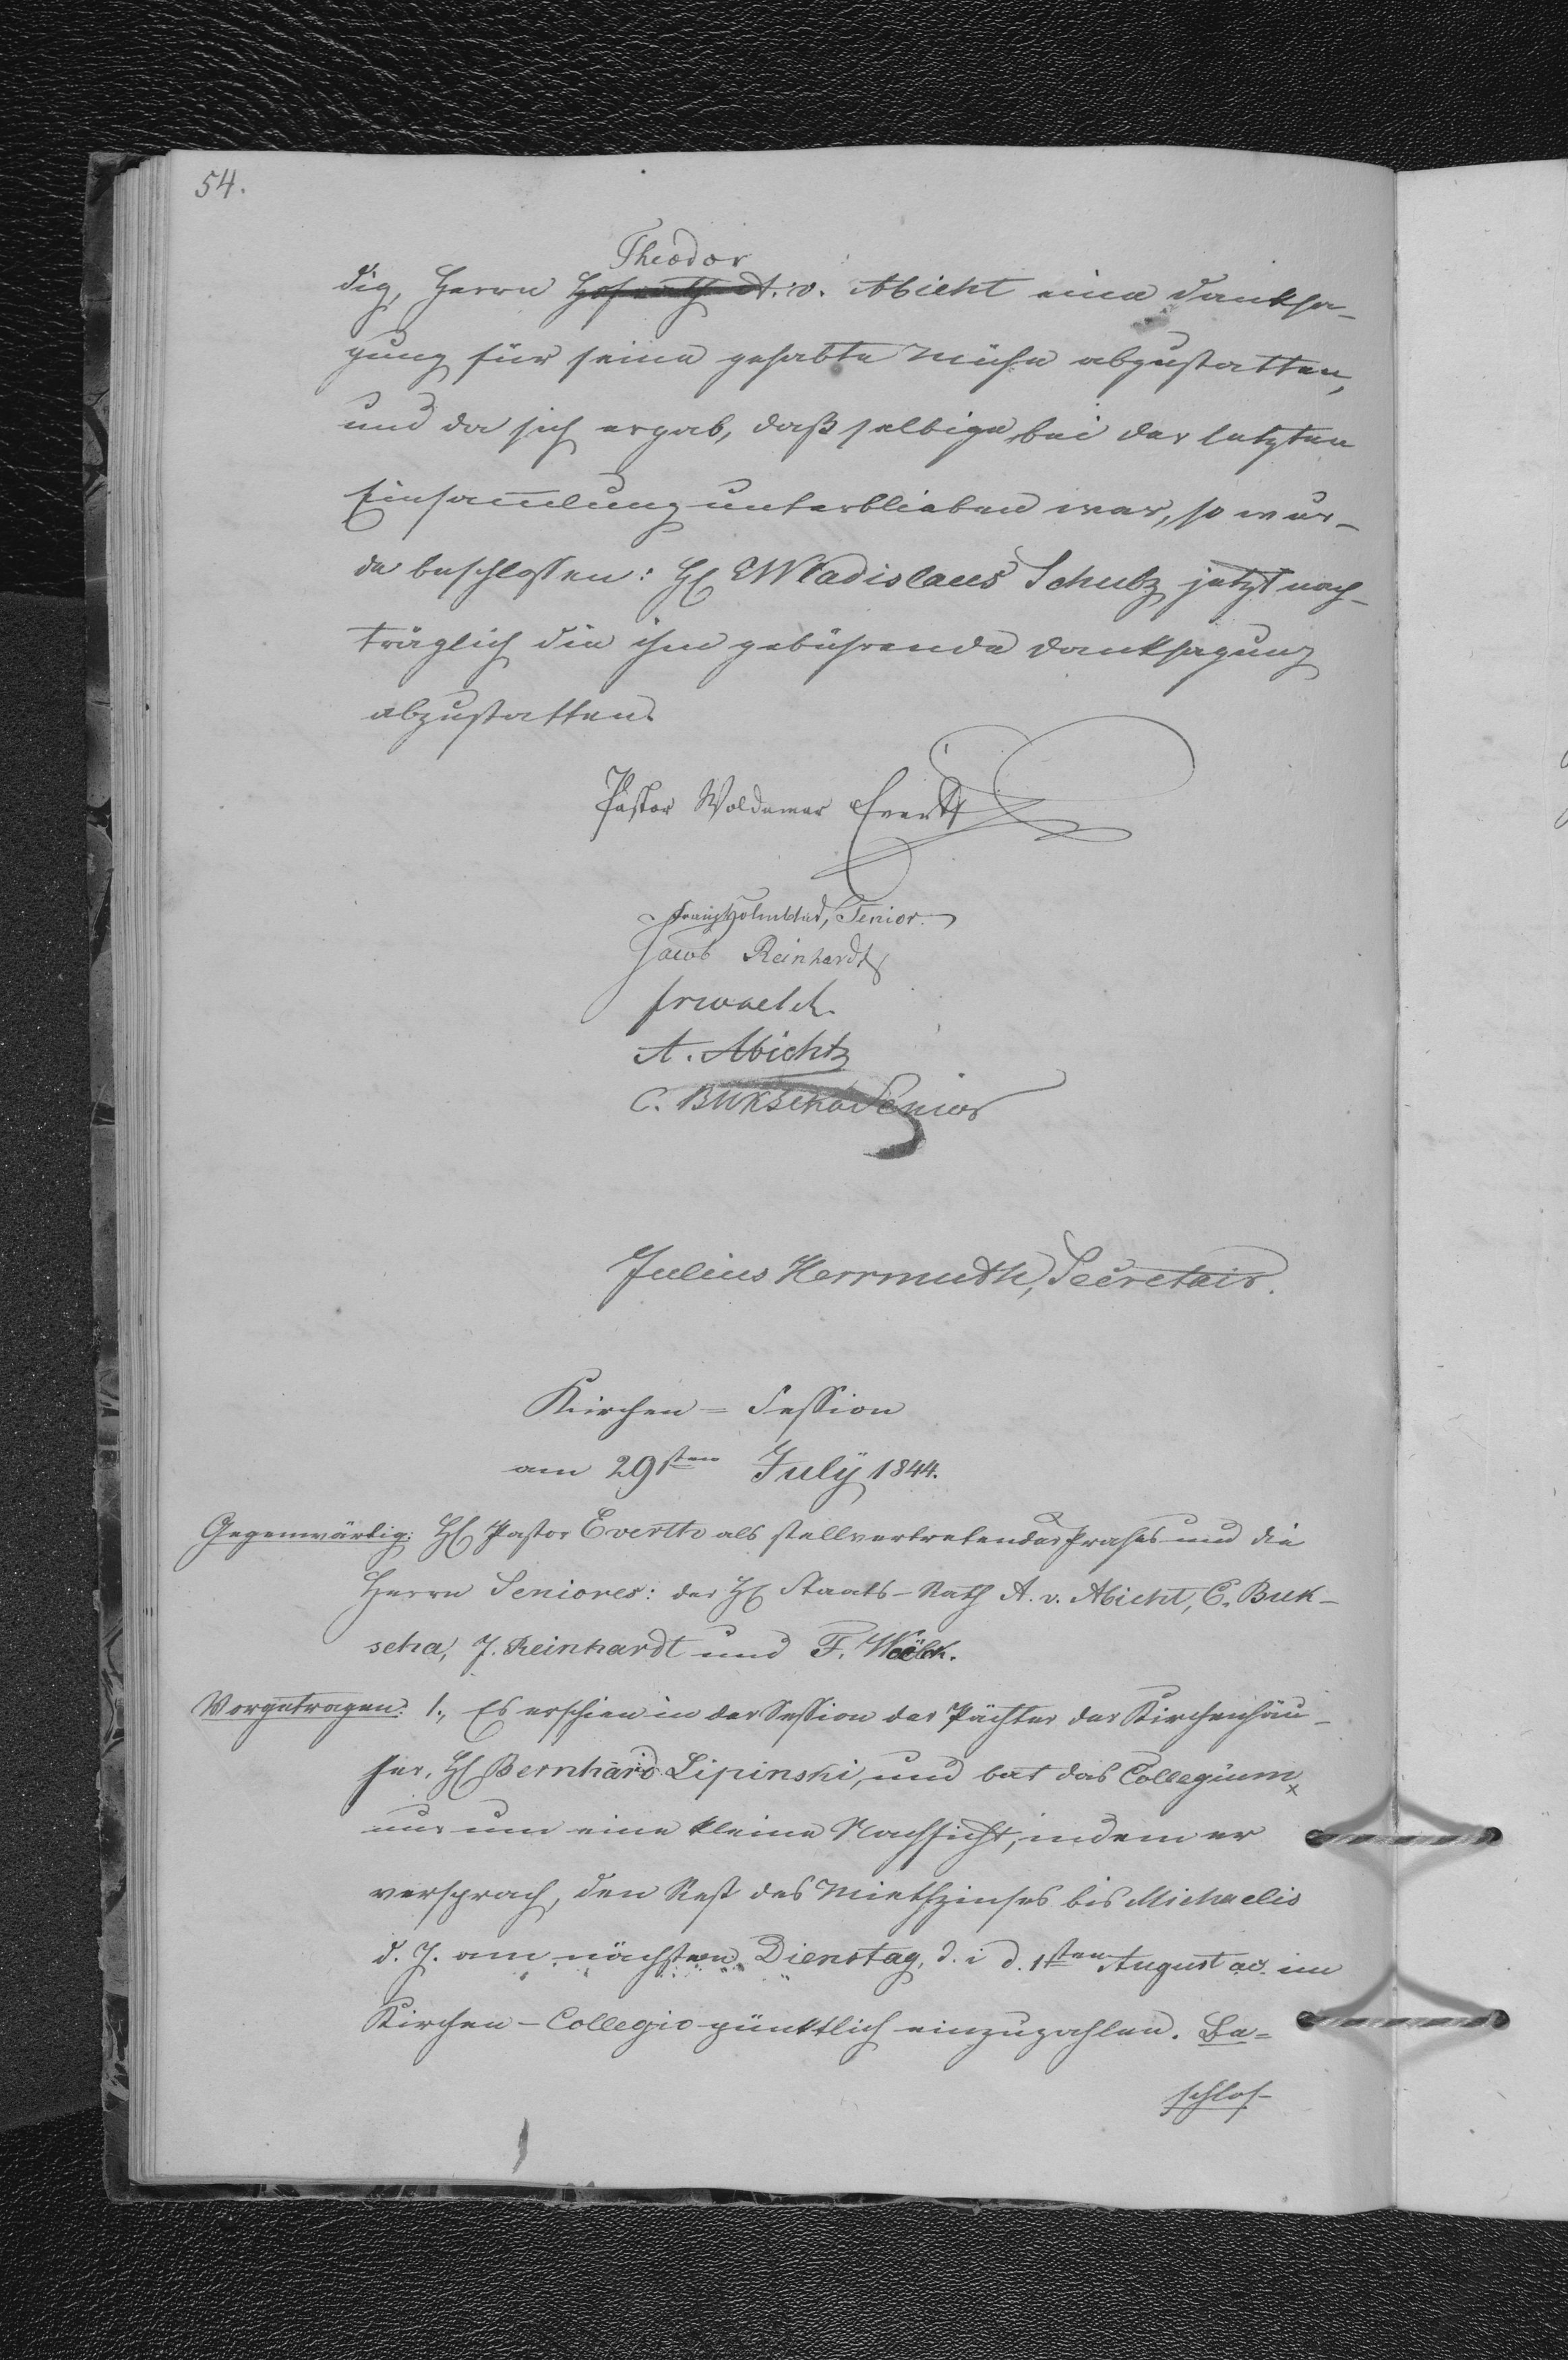 54.
Theodor
dig, Herrn Hofrath A. v. Abicht eine Danksa-
gung für seine gehabte Mühe abzustatten,
und da sich ergab, daß selbige bei der letzten
Einsam̅lung unterblieben war, so wur-
de beschlossen: H. Wladislaus Schulz jetzt nach-
träglich die ihm gebührende Danksagung
abzustatten.
Pastor Woldemar Everth
Holmblad, Senior.
Jacob Reinhardt
A. Abicht
C. Bukscha Senior
Julius Herrmuth, Secretair.
Kirchen = Session
am 29sten Julÿ 1844.
Gegenwärtig: H. Pastor Everth als stellvertretender Präses und die
Herrn Seniores: der H. Staats-Rath A. v. Abicht, C. Buk-
scha, J. Reinhardt und F. Wöelck.
Vorgetragen: 1., Es erschien in der Session der Pächter der Kirchenhäu-
ser, H. Bernhard Lipinski, und bat das Collegium
nur um eine kleine Nachsicht, indem er
versprach, den Rest des Miethzinses bis Michaelis
d. J. am nächsten Dienstag, d. i d. 1sten August ac. im
Kirchen-Collegio pünktlich einzuzahlen. Be=
schlos-